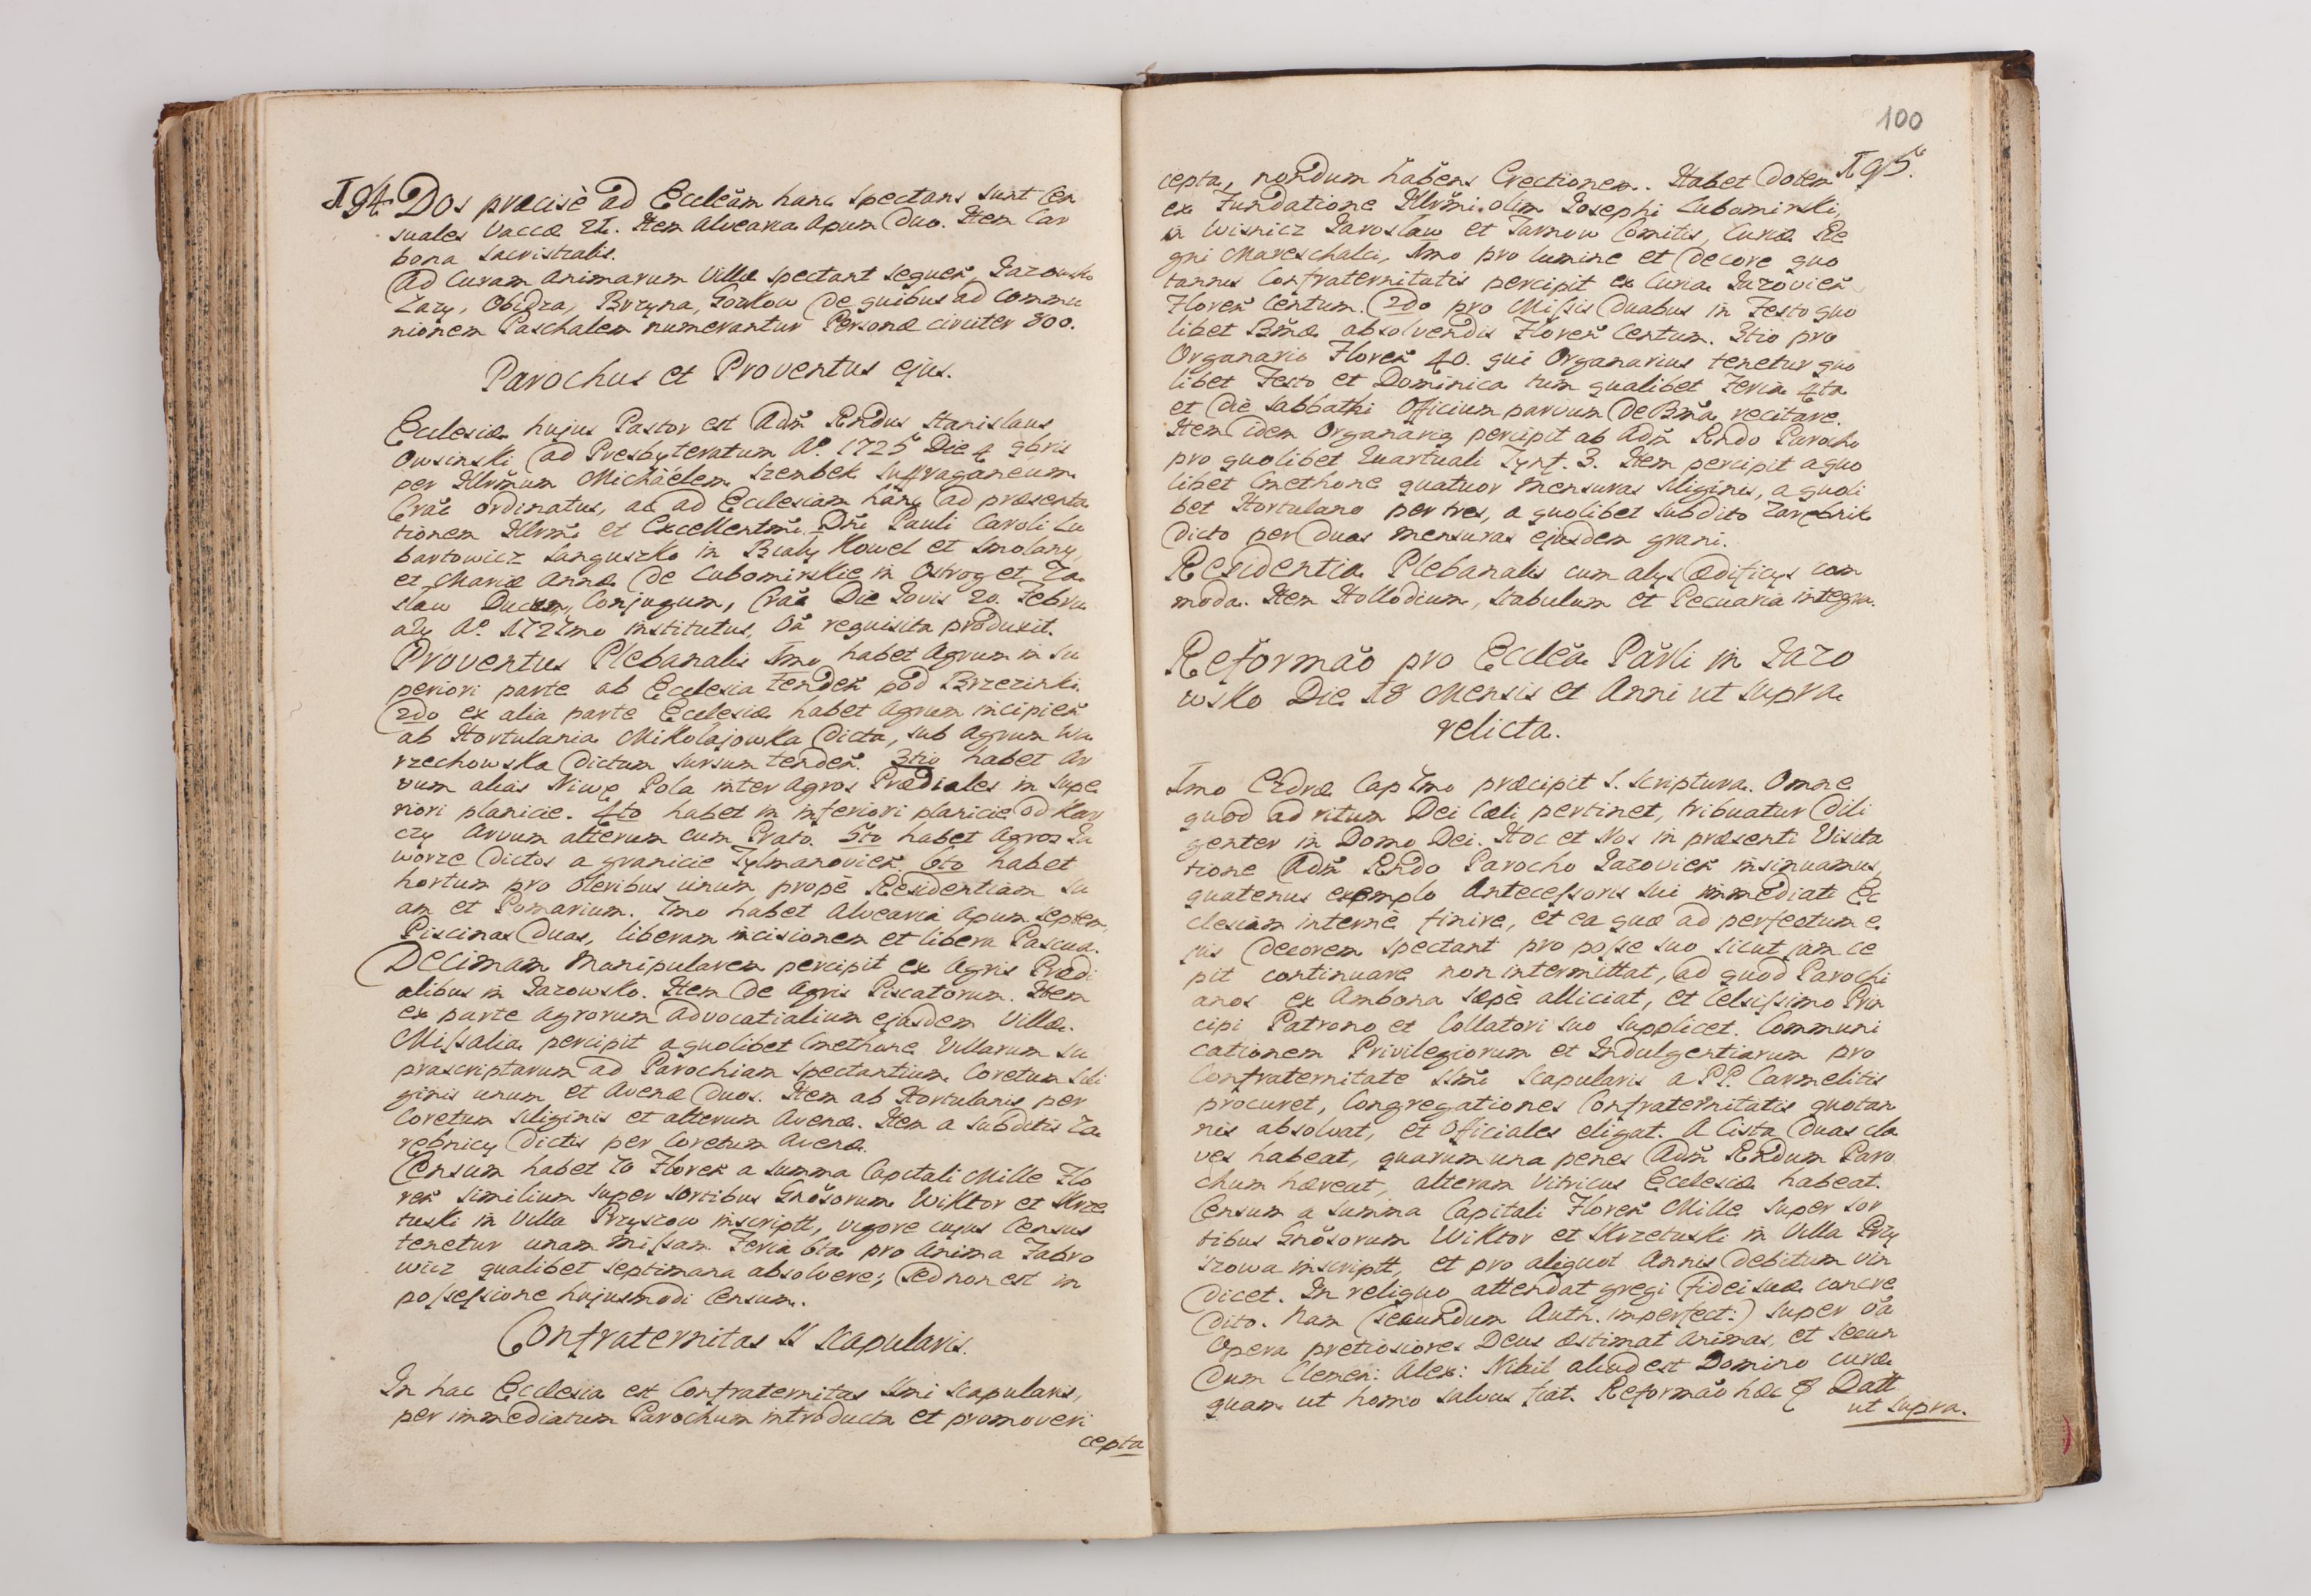 194. Dos præcisè ad Ecclẽam hanc spectans sunt Cen
suales Vaccæ 21. Item Alvearia Apum duo. Item Car
bona Sacristialis.
Ad Curam Animarum Villæ spectant sequen̄, Jazowsko
Łazy, Obidza, Brzyna, Gorkow de quibus ad Commu
nionem Paschalem numerantur Personæ circiter 800.
Parochus et Proventus ejus.
Ecclesiæ hujus Pastor est Adm̃ Rñdus Stanislaus
Owsinski ad Presbyteratum Aº. 1725 Die 4 9bris
per Illrm̃um Michäelem Szembek Suffraganeum
Crac̃ ordinatus, ac ad Ecclesiam hanc ad præsenta
tionem Illrmĩ et Excellentm̃i Dñi Pauli Caroli Lu
bartowicz Sanguszko in Biały Kowel et Smolany,
et Mariæ Annæ de Lubomirskie in Ostrog et Za
sław Ducum, Conjugum, Crac̃ Die Jovis 20. Febru
arij Aº. 1727mo institutus, Oã requisita produxit.
Proventus Plebanalis 1mo habet Agrum in su
periori parte ab Ecclesia tenden̄ pod Brzezinki.
2do ex alia parte Ecclesiæ habet Agrum incipien̄
ab Hortulania Mikołajowka dicta, sub Agrum Wa
rzechowska dictum sursum tenden̄. 3tio habet Ar
vum alias Niwę Pola inter Agros Prædiales in supe
riori planicie. 4to habet in inferiori planicie od Kar
czy Arvum alterum cum Prato. 5to habet Agros Ja
worze dictos a granicie Tylmanovien̄ 6to habet
hortum pro Oleribus unum propè Residentiam su
am et Pomarium. 7mo habet Alvearia Apum septem,
Piscinas duas, liberam incisionem et libera Pascua.
Decimam Manipularem percipit ex Agris Prædi
alibus in Jazowsko. Item de Agris Piscatorum. Item
ex parte Agrorum Advocatialium ejusdem Villæ.
Missalia percipit a quolibet Cmethone Villarum su
prascriptarum ad Parochiam spectantium Coretum Sili
ginis unum et Avenæ duos. Item ab Hortulanis per
Coretum Siliginis et alterum Avenæ. Item a Subditis Za
rębnicy dictis per Coretum Avenæ.
Censum habet 70 Floren̄ a Summa Capitali Mille Flo
ren̄ similium super sortibus Gnõsorum Wiktor et Skrze
tuski in Villa Przyszow inscriptt, vigore cujus Census
tenetur unam Missam Feria 6ta pro Anima Fabro
wicz qualibet septimana absolvere; sed non est in
possessione hujusmodi Census.
Confraternitas SS Scapularis.
In hac Ecclesia est Confraternitas SSmi Scapularis,
per immediatum Parochum introducta et promoveri
cepta
100
195.
cepta, nondum habens Erectionem. Habet dotem
ex Fundatione Illrm̃i olim Josephi Lubomirski,
in Wisnicz Jarosław et Jarnow Comitis, Curiæ Re
gni Mareschalci, 1mo pro lumine et decore quo
tannis Confraternitatis percipit ex Curia Jazovien̄
Floren̄ Centum. 2do pro Missis duabus in Festo quo
libet Bm̃æ absolvendis Floren̄ Centum. 3tio pro
Organario Floren̄ 40. qui Organarius tenetur quo
libet Festo et Dominica tum qualibet Feria 4ta
et die Sabbathi Officium parvum de Bm̃a recitare.
Item idem Organarig percipit ab Adm̃ Rñdo Parocho
pro quolibet Quartuali Tynf. 3. Item percipit a quo
libet Cmethone quatuor mensuras Siliginis, a quoli
bet Hortulano per tres, a quolibet subdito Zarębnik
dicto per duas mensuras ejusdem grani.
Residentia Plebanalis cum alijs Ædificijs com
moda. Item Hollodium, Stabulum et Pecuaria integra.
Reformaõ pro Ecclẽa Pařli in Jazo
wsko Die 18 Mensis et Anni ut supra
relicta.
1mo Esdræ Cap 7mo præcipit S. Scriptura. Omne
quod ad ritum Dei Cæli pertinet, tribuatur dili
genter in Domo Dei. Hoc et Nos in præsenti Visita
tione Adm̃ Rñdo Parocho Jazovien̄ insinuamus,
quatenus exemplo Antecessoris sui immediati Ec
clesiam internè finire, et ea quæ ad perfectum e
jus decorem spectant pro posse suo sicut jam ce
pit continuare non intermittat, ad quod Parochi
anos ex Ambona sæpè alliciat, et Celsissimo Prin
cipi Patrono et Collatori suo supplicet. Communi
cationem Privilegiorum et Indulgentiarum pro
Confraternitate SSmĩ Scapularis a PP. Carmelitis
procuret, Congregationes Confraternitatis quotan
nis absolvat, et Officiales eligat. A Cista duas cla
ves habeat, quarum una penes Adm̃ Rñdum Paro
chum hæreat, alteram Vitricus Ecclesiæ habeat.
Censum a Summa Capitali Floren̄ Mille super sor
tibus Gnõsorum Wiktor et Skrzetuski in Villa Przy
szowa inscriptt, et pro aliquot Annis debitum vin
dicet. In reliquo attendat gregi fidei suæ concre
dito. Nam (secundum Auth. imperfect:) super oã
Opera pretiosiores Deus æstimat animas, et secun
dum Clemen: Alex: Nihil aliud est Domino curæ
quam ut homo salvus fiat. Reformaõ hæc & Datt
ut supra.